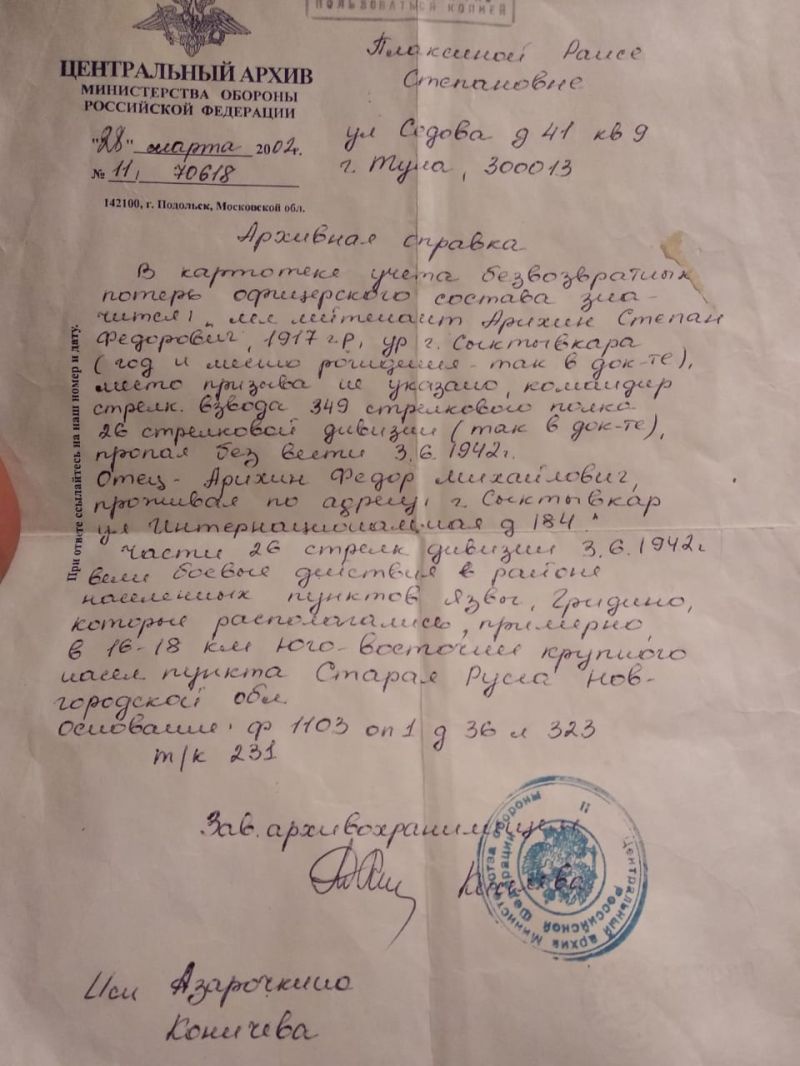 ПОЛЬЗОВАТЬСЯ КОПИЕЙ
ЦЕНТРАЛЬНЫЙ АРХИВ
МИНИСТЕРСТВА ОБОРОНЫ
РОССИЙСКОЙ ФЕДЕРАЦИИ
"28" марта 2002г.
№ 11, 70618
142100, г. Подольск, Московской обл.
Плаксиной Раисе
Степановне
ул Седова д 41 кв 9
г. Тула, 300013
Архивная справка
В картотеке учета безвозвратных
потерь офицерского состава зна-
чится: "мл лейтенант Арихин Степан
Федорович, 1917 г.р, ур г. Сыктывкара
(год и место рождения - так в док-те),
место призыва не указано, командир
стрелк. взвода 349 стрелкового полка
26 стрелковой дивизии (так в док-те),
пропал без вести 3.6.1942г.
Отец - Арихин Федор Михайлович,
проживал по адресу: г. Сыктывкар
ул Интернациональная д 184."
Части 26 стрелк дивизии 3.6.1942г
вели боевые действия в районе
населенных пунктов Язвы, Гридино,
которые располагались, примерно,
в 16-18 км юго-восточнее крупного
насел пункта Старая Русса Нов-
городской обл.
Основание: ф 1103 оп 1 д 36 л 323
т/к 231
Зав. архивохранилищем
Исп Азарочкина
Коничева
При ответе ссылайтесь на наш номер и дату.
Центральный архив Министерства обороны
Российской Федерации